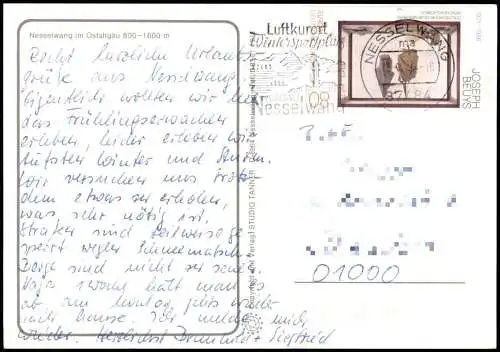 Nesselwang im Ostallgäu 800-1600 m
Recht herzliche Urlaubs-
grüße aus Nesselwang.
Eigentlich wollten wir hier
das Frühlingserwachen
erleben, leider erleben wir
tiefsten Winter und Sturm.
Wir versuchen uns trotz-
dem etwas zu erholen,
was sehr nötig ist.
Straßen sind teilweise ge-
sperrt wegen Schneematsch.
Berge sind nicht zu sehen.
Naja schwarz hält man es
ab. am Montag geht's wieder
nach Hause. Ich melde mich
wieder. Herzlichst Brunhild + Siegfried
STUDIO TANNER
Luftkurort
Wintersportplatz
Nesselwang
NESSELWANG
87484
JOSEPH
BEUYS
01000